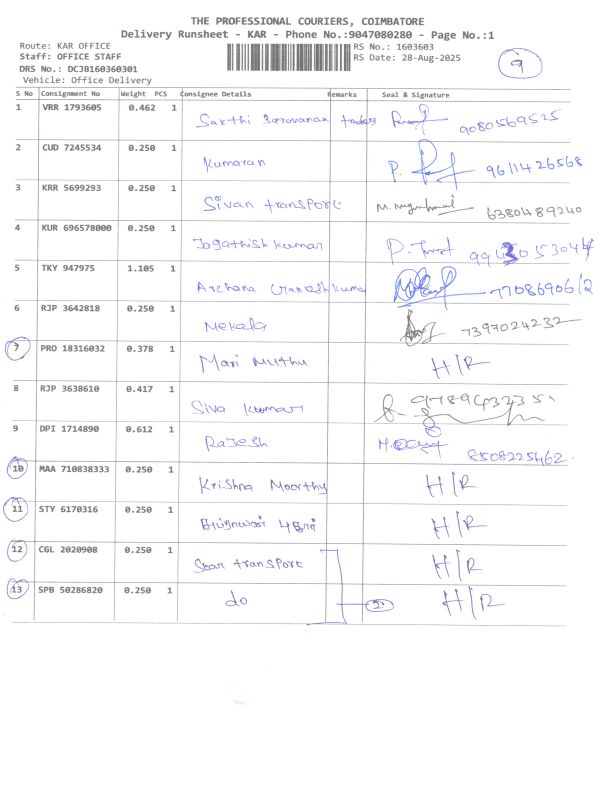 THE PROFESSIONAL COURIERS, COIMBATORE
Delivery Runsheet - KAR - Phone No.:9047080280 - Page No.:1
Route: KAR OFFICE RS No.: 1603603
Staff: OFFICE STAFF RS Date: 28-Aug-2025
9
DRS No.: DCJB160360301
Vehicle: Office Delivery
S No Consignment No Weight PCS Consignee Details Remarks Seal & Signature
1 VRR 1793605 0.462 1 Sakthi Saravanan traders 9080569525
2 CUD 7245534 0.250 1 Kumaran 9611426568
3 KRR 5699293 0.250 1 Sivan transport 6380489240
4 KUR 696578000 0.250 1 Jagathish kumar
5 TKY 947975 1.105 1 Archana 7708690612
6 RJP 3642818 0.250 1 Mekala 7397024232
7 PRO 18316032 0.378 1 Mari Muthu H/R
8 RJP 3638610 0.417 1 Siva kumar
9 DPI 1714890 0.612 1 Rajesh 8508225462
10 MAA 710838333 0.250 1 Krishna Moorthy H/R
11 STY 6170316 0.250 1 H/R
12 CGL 2020908 0.250 1 Star transport H/R
13 SPB 50286820 0.250 1 do H/R